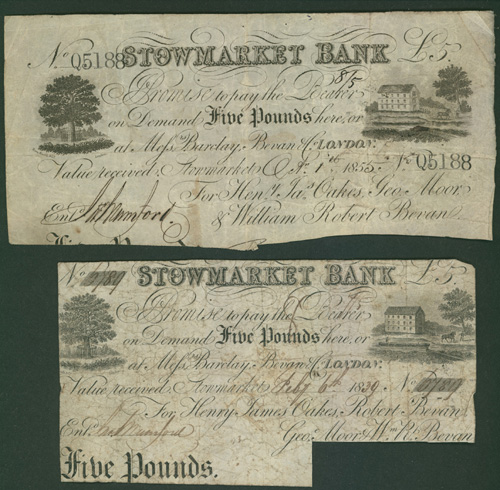 No Q5188 STOWMARKET BANK £5.
8/5
I Promise to pay the Bearer
on Demand Five Pounds here, or
at Messrs Barclay, Bevan & Co. LONDON.
Value received, Stowmarket 1st 1855. No Q5188
For Heny. Jas. Oakes, Geo. Moor
Entd. & William Robert Bevan
Five Pounds
No STOWMARKET BANK £5
I Promise to pay the Bearer
on Demand Five Pounds here, or
at Messrs Barclay, Bevan & Co. LONDON.
Value received, Stowmarket Feby 6th 1839 No
For Henry James Oakes, Robert Bevan
Entd. Geo. Moor & Wm. Rt. Bevan
Five Pounds.